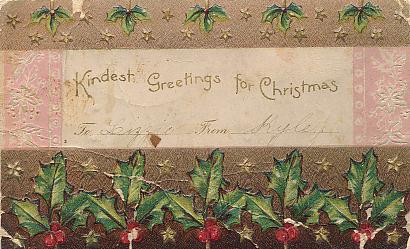 Kindest Greetings for Christmas
To Lizzie From